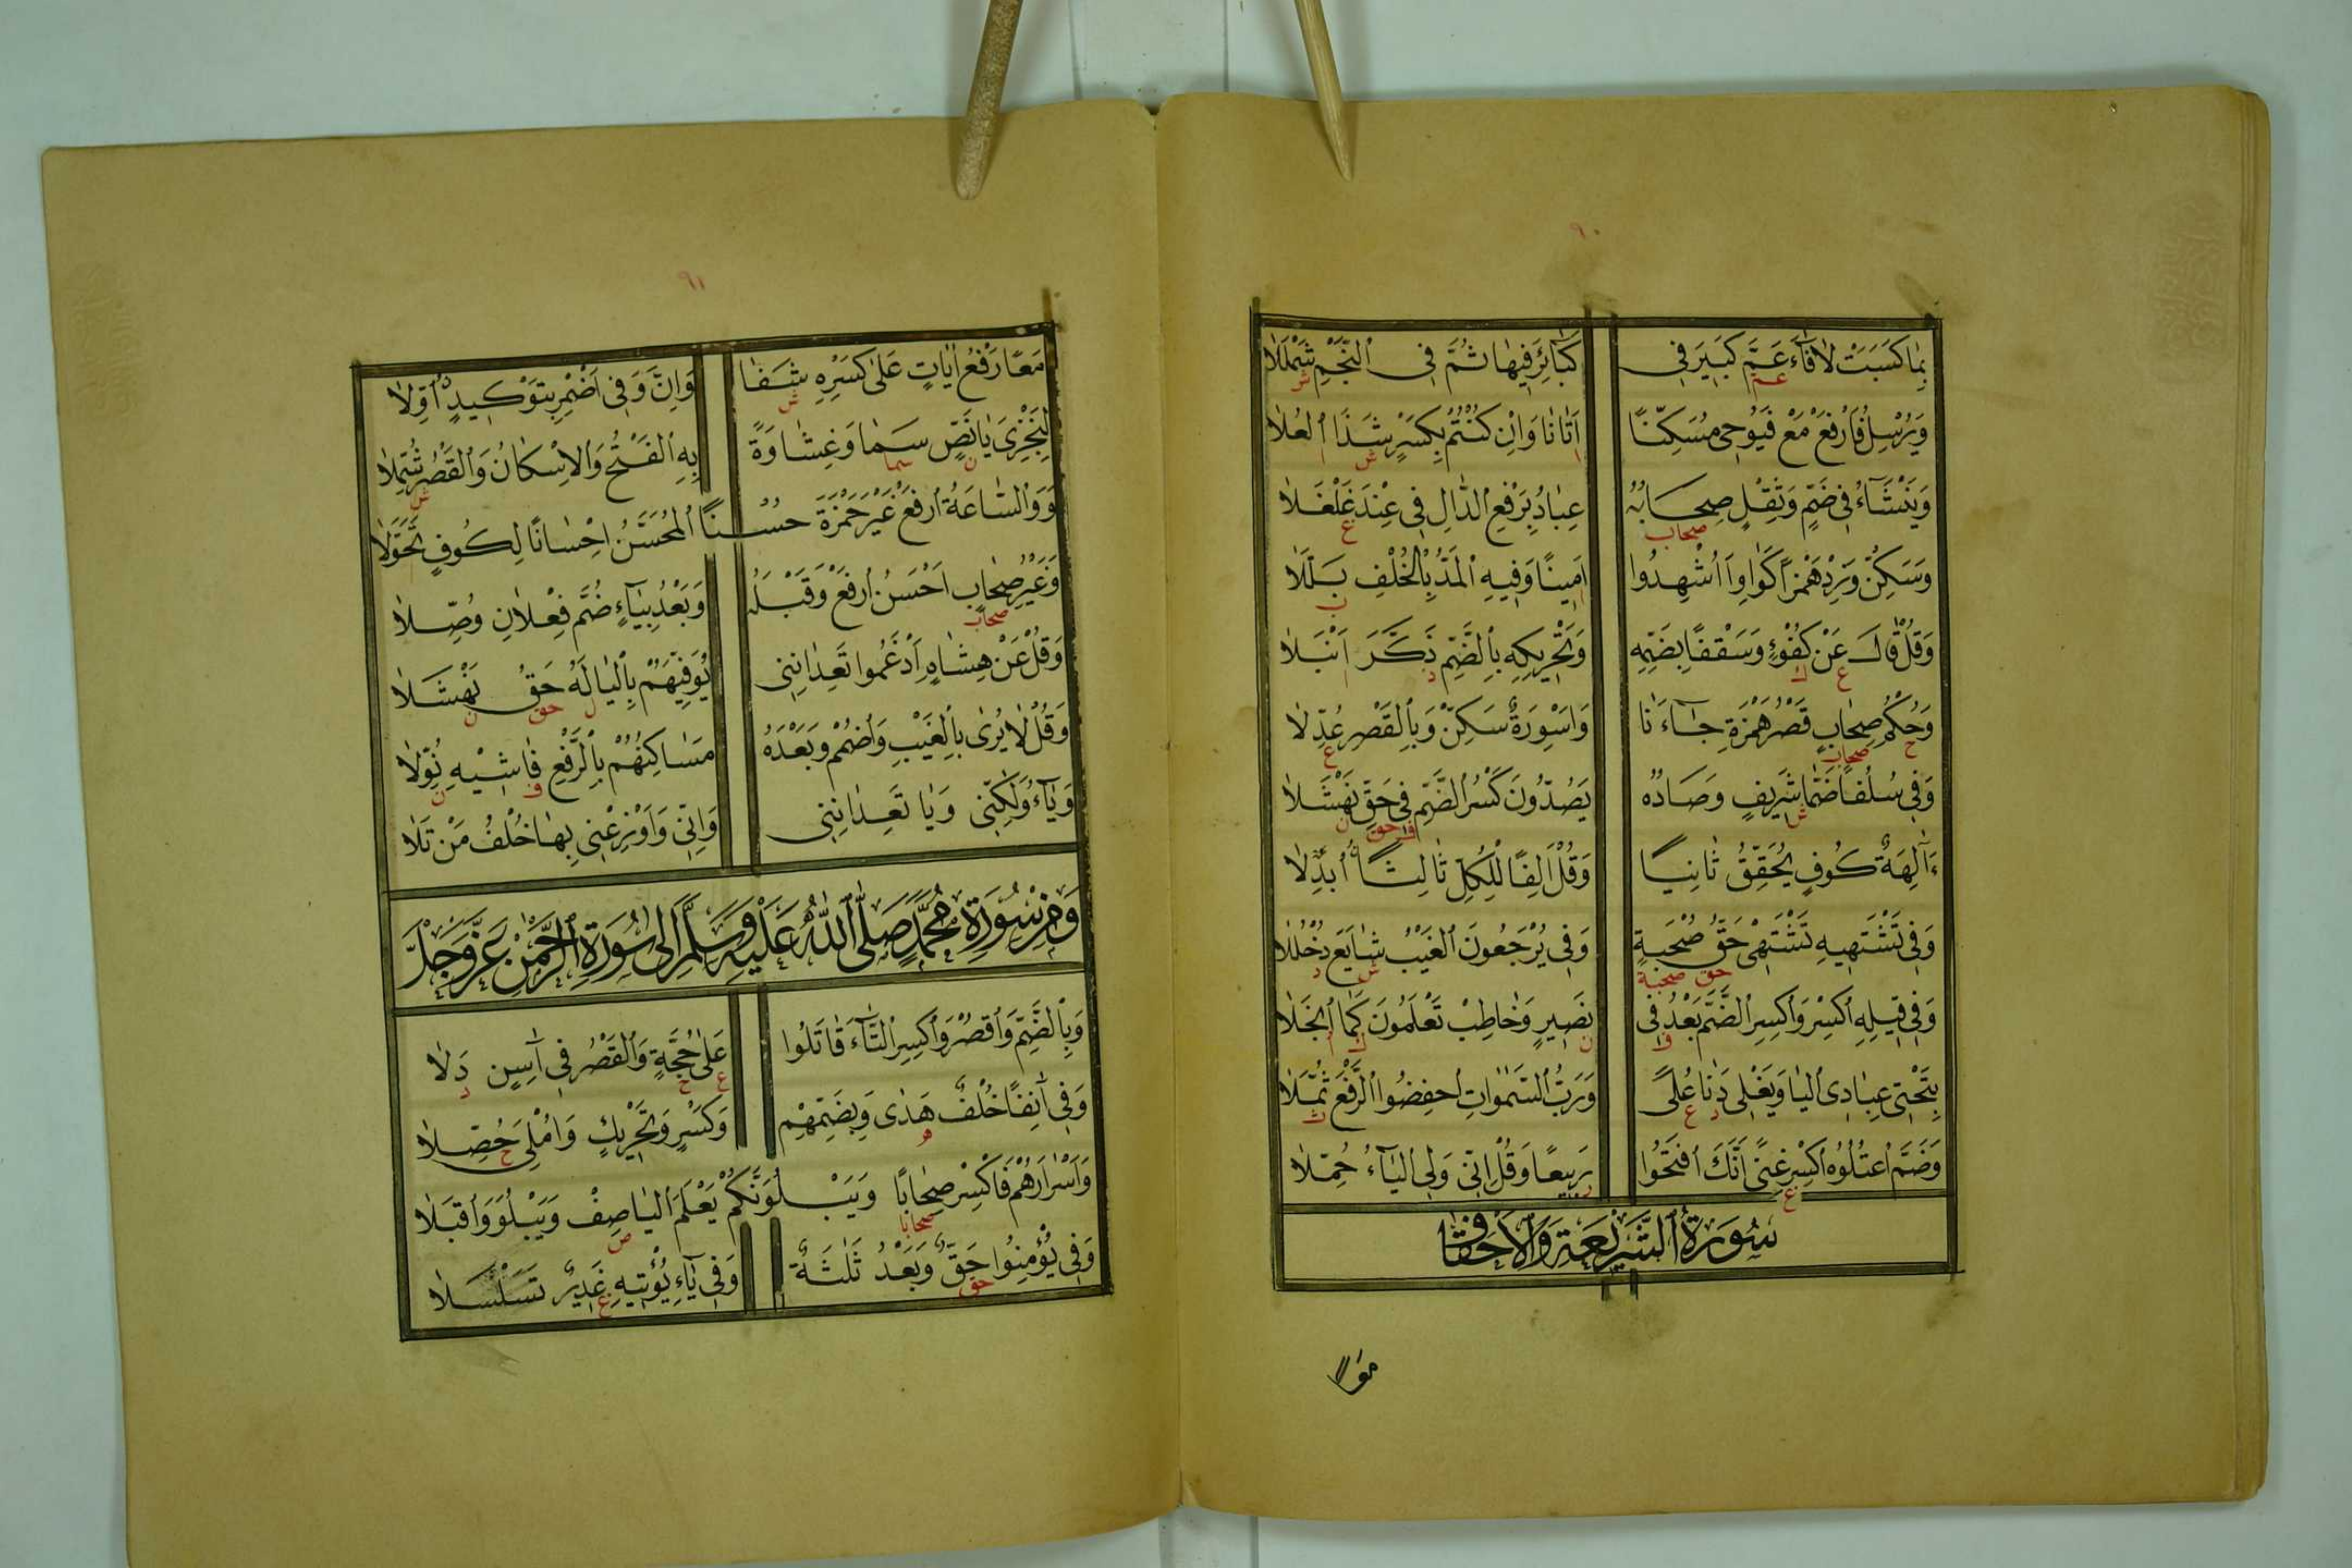 ٩٠
بِمَا كَسَبَتْ لَا فَآءَ عَمَّ كَبِيرَ فِي كَبَآئِرَ فِيهَا ثُمَّ فِي ٱلنَّجْمِ شَمْلَلَا
عم ش
وَيُرْسِلُ فَارْفَعْ مَعْ فَيُوحِي مُسَكِّنًا أَتَانَا وَاِنْ كُنْتُمْ بِكَسْرٍ شَذَا ٱلعُلَا
ا ش ا
وَيَنْشَاءُ فِي ضَمٍّ وَثِقْلٍ صِحَابُهُ عِبَادُ بِرَفْعِ الدَّالِ فِي عِنْدَ غَلْغَلَا
صحاب غ
وَسَكِّنْ وَزِدْ هَمْزًا كَوَاوٍ اَاُشْهِدُوا اَمِينًا وَفِيهِ ٱلمَدُّ بِالخُلْفِ بَلَّلَا
ا ب
وَقُلْ قَالَ عَنْ كُفْوءٍ وَسَقْفًا بِضَمِّهِ وَتَحْرِيكِهِ بِٱلضَّمِّ ذَكَّرَ اَنْبَلَا
ع ك د ا
وَحُكْمُ صِحَابٍ قَصْرُ هَمْزَةِ جَآءَنَا وَاَسْوِرَةٌ سَكِّنْ وَبِٱلقَصْرِ عُدِّلَا
ح صحاب ع
وَفِي سُلُفًا ضَمَّا شَرِيفٍ وَصَادُهُ يَصُدُّونَ كَسْرُ ٱلضَّمِّ فِي حَقِّ نَهْشَلَا
ش ف حق ن
ءَآلِهَةٌ كُوفٍ يُحَقِّقُ ثَانِيًا وَقُلْ اَلِفًا لِلْكُلِّ ثَالِثًا ٱبْدِلَا
وَفِي تَشْتَهِيهِ تَشْتَهِي حَقُّ صُحْبَةٍ وَفِي يُرْجَعُونَ ٱلغَيْبُ شَايَعَ دُخْلُلَا
حق صحبة ش د
وَفِي قِيلِهِ ٱكْسِرْ وَٱكْسِرِ ٱلضَّمَّ بَعْدُ فِي نَصِيرٍ وَخَاطِبْ تَعْلَمُونَ كَمَا ٱنْجَلَا
ف ن ك ا
بِتَحْتِي عِبَادِي ٱليَا وَيَغْلِي دَنَا عُلًى وَرَبُّ ٱلسَّمٰوَاتِ ٱخفِضُوا ٱلرَّفْعَ ثُمَّلَا
د ع ث
وَضَمَّ ٱعْتُلُوُه ٱكْسِرْ غِنًى اَنَّكَ ٱفْتَحُوا رَبِيعًا وَقُلْ اِنِّي وَلِي ٱليَآءُ حُمِّلَا
غ ر
سُورَةُ ٱلشَّرِيعَةِ وَٱلْاَحْقَافِ
معًا
٩١
مَعًا رَفْعُ اٰيَاتٍ عَلَى كَسْرِهِ شَفَا وَاِنَّ وَفِي اَضْمِرْ بِتَوْكِيدٍ ٱوِّلَا
ش
لِيَجْزِيَ يَا نَصٍّ سَمَا وَغِشَاوَةً بِهِ ٱلفَتْحُ وَالاِسْكَانُ وَٱلقَصْرُ شُمِّلَا
ن سما ش
وَوَٱلسَّاعَةُ ٱرفَعْ غَيْرَ حَمْزَةَ حُسْنًا ٱلمُحَسَّنُ اِحْسَانًا لِكُوفٍ تَحَوَّلَا
وَغَيْرُ صِحَابٍ اَحْسَنُ ٱرفَعْ وَقَبْلَهُ وَبَعْدُ بِيَآءٍ ضُمَّ فِعْلَانِ وُصِّلَا
صحاب
وَقُلْ عَنْ هِشَامٍ اَدْغَمُوا تَعِدَانِنِي نُوَفِّيَهُمْ بِٱليَا لَهُ حَقُّ نَهْشَلَا
ل حق ن
وَقُلْ لَا يُرَى بِٱلغَيْبِ وَٱضْمُمْ وَبَعْدَهُ مَسَاكِنُهُمْ بِٱلرَّفْعِ فَاشِيهِ نُوِّلَا
ف ن
وَيَآءُ وَلٰكِنِّي وَيَا تَعِدَانِنِي وَاِنِّي وَاَوْزِعْنِي بِهَا خُلْفُ مَنْ تَلَا
وَمِنْ سُورَةِ مُحَمَّدٍ صَلَّى ٱللّٰهُ عَلَيْهِ وَسَلَّمَ اِلٰى سُورَةِ ٱلرَّحْمٰنِ عَزَّ وَجَلَّ
وَبِٱلضَّمِّ وَٱقْصُرْ وَٱكْسِرِ ٱلتَّآءَ قَاتَلُوا عَلَى حُجَّةٍ وَٱلقَصْرُ فِي آسِنٍ دَلَا
ع ح د
وَفِي آنِفًا خُلْفٌ هَدَى وَبِضَمِّهِمْ وَكَسْرٍ وَتَحْرِيكٍ وَاُمْلِيَ حُصِّلَا
ه ح
وَاَسْرَارَهُمْ فَاكْسِرْ صِحَابًا وَيَبْلُوَنَّكُمْ يَعْلَمَ ٱليَا صِفْ وَيَبْلُوَ وَٱقْبَلَا
صحابا ص
وَفِي يُؤْمِنُوا حَقٌّ وَبَعْدُ ثَلَثَةٌ وَفِي يَآءِ يُؤْتِيهِ غَدِيرٌ تَسَلْسَلَا
حق غ